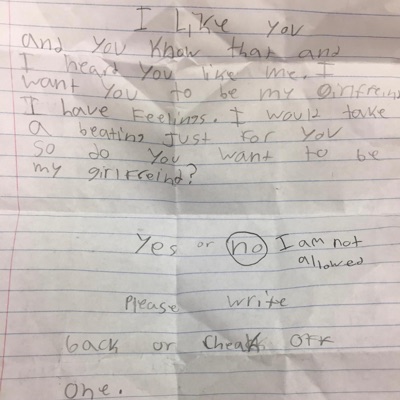 I Like you
and you know that and
I heart you like me. I
want you to be my girlfreind
I have Feelings. I would take
a beating Just for you
so do you want to be
my girlfreind?
Yes or no I am not
allowed
Please write
back or Cheak off
one.